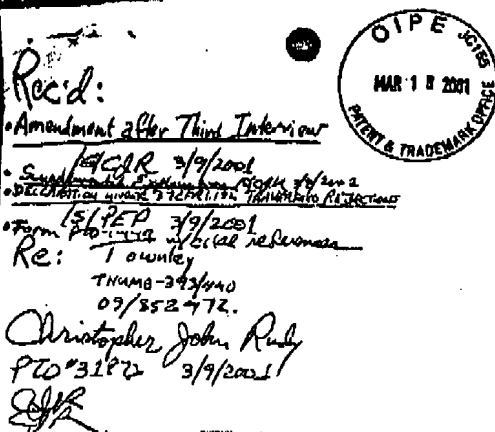 OIPE JC155
MAR 18 2001
PATENT & TRADEMARK OFFICE
Rec'd:
•Amendment after Third Interview
/S/ CJR 3/9/2001
• DECLARATION UNDER
/S/ PEP 3/9/2001
•Form PTO-1449 w/ cited references
Re: Townley
THUMB-393/440
09/852972.
Christopher John Rudy
PTO #31872 3/9/2001